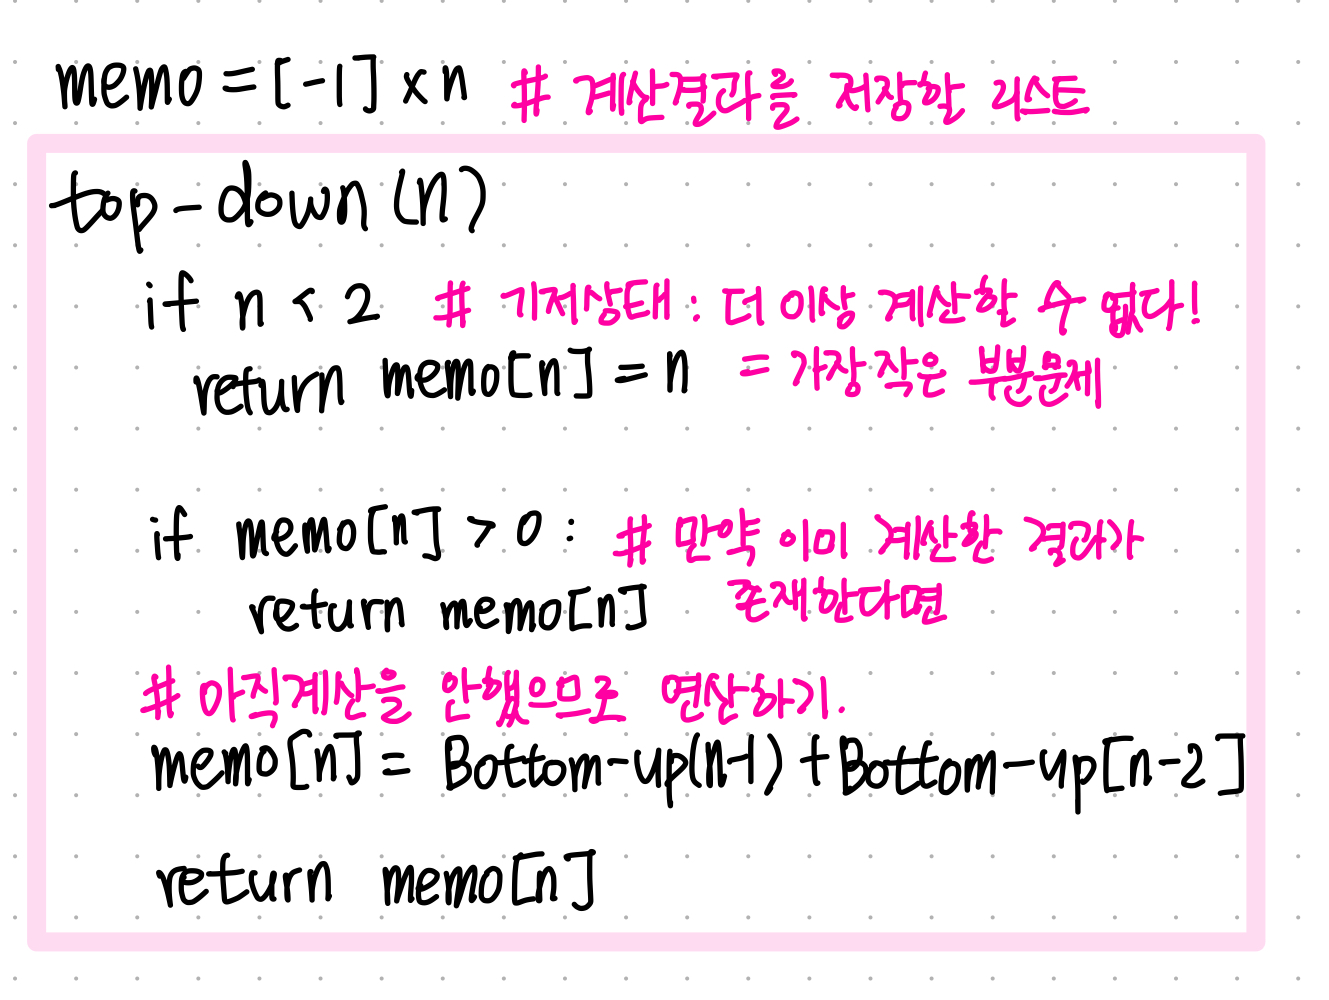 memo = [-1] x n # 계산결과를 저장할 리스트
top-down (n)
if n < 2 # 기저상태 : 더 이상 계산할 수 없다!
return memo[n] = n = 가장 작은 부분문제
if memo[n] > 0 : # 만약 이미 계산한 결과가
return memo[n] 존재한다면
# 아직계산을 안했으므로 연산하기.
memo[n] = Bottom-up(n-1) + Bottom-up[n-2]
return memo[n]